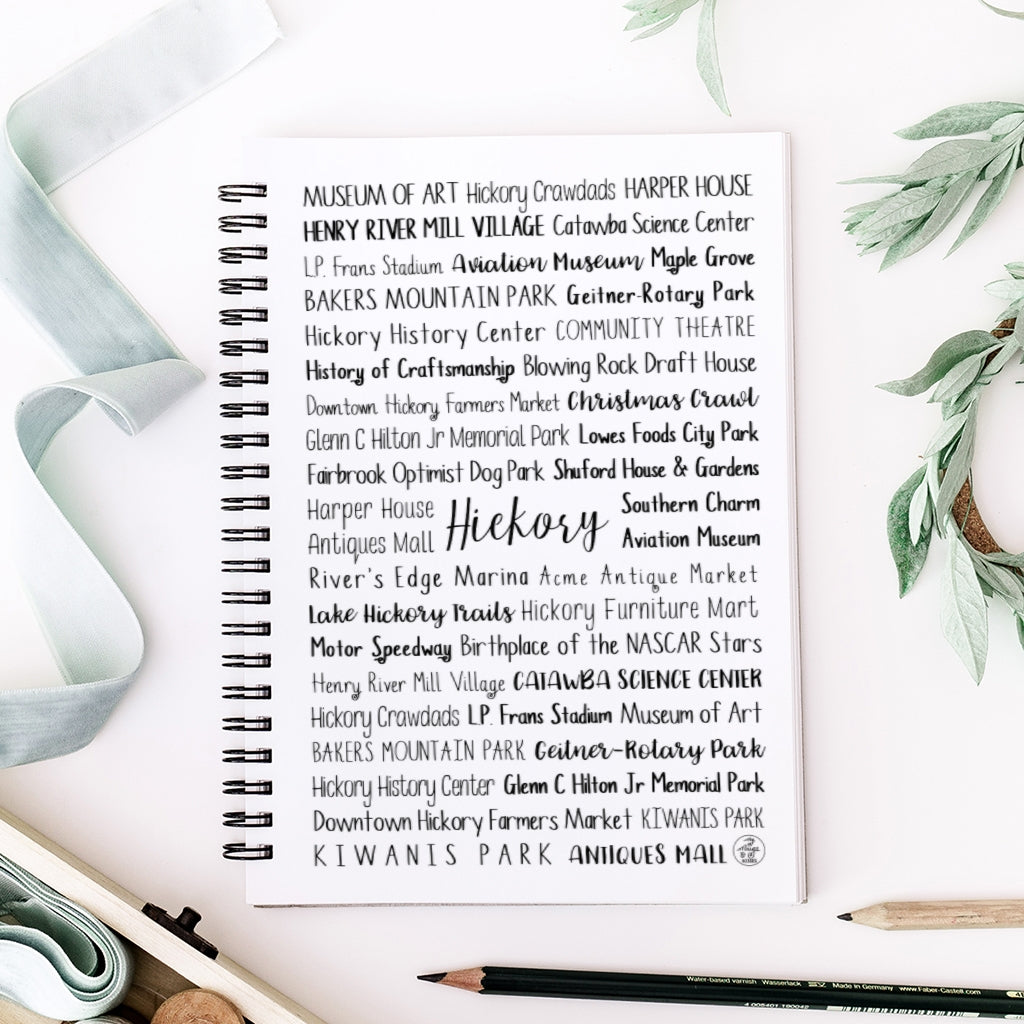 MUSEUM OF ART Hickory Crawdads HARPER HOUSE
HENRY RIVER MILL VILLAGE Catawba Science Center
L.P. Frans Stadium Aviation Museum Maple Grove
BAKERS MOUNTAIN PARK Geitner-Rotary Park
Hickory History Center COMMUNITY THEATRE
History of Craftsmanship Blowing Rock Draft House
Downtown Hickory Farmers Market Christmas Crawl
Glenn C Hilton Jr Memorial Park Lowes Foods City Park
Fairbrook Optimist Dog Park Shuford House & Gardens
Harper House
Antiques Mall
Hickory
Southern Charm
Aviation Museum
River's Edge Marina Acme Antique Market
Lake Hickory Trails Hickory Furniture Mart
Motor Speedway Birthplace of the NASCAR Stars
Henry River Mill Village CATAWBA SCIENCE CENTER
Hickory Crawdads L.P. Frans Stadium Museum of Art
BAKERS MOUNTAIN PARK Geitner-Rotary Park
Hickory History Center Glenn C Hilton Jr Memorial Park
Downtown Hickory Farmers Market KIWANIS PARK
KIWANIS PARK ANTIQUES MALL
Water-based varnish Wasserlack Made in Germany www.Faber-Castell.com
4 005401 190042